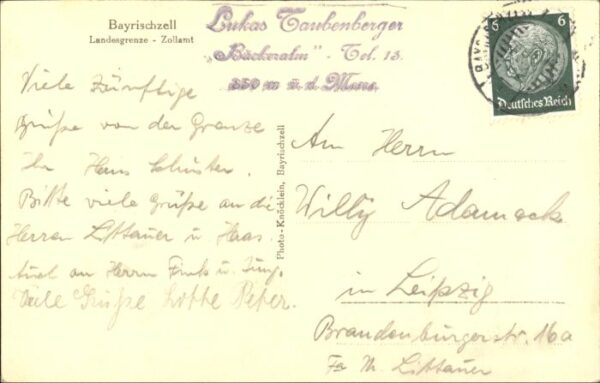 Bayrischzell
Landesgrenze - Zollamt
Lukas Taubenberger
„Bäckeralm" - Tel. 13
850 m ü. d. Meere
6 6
Deutsches Reich
Viele zünftige
Grüße von der Grenze
Ihr Hans Schuster.
Bitte viele Grüße an die
Herren Littauer u. Haas.
Auch an Herrn Fink u. Jung.
Viele Grüße Lotte Peter.
Photo-Knöcklein, Bayrischzell
An Herrn
Willy Adameck
in Leipzig
Brandenburgerstr. 16a
Fa M. Littauer